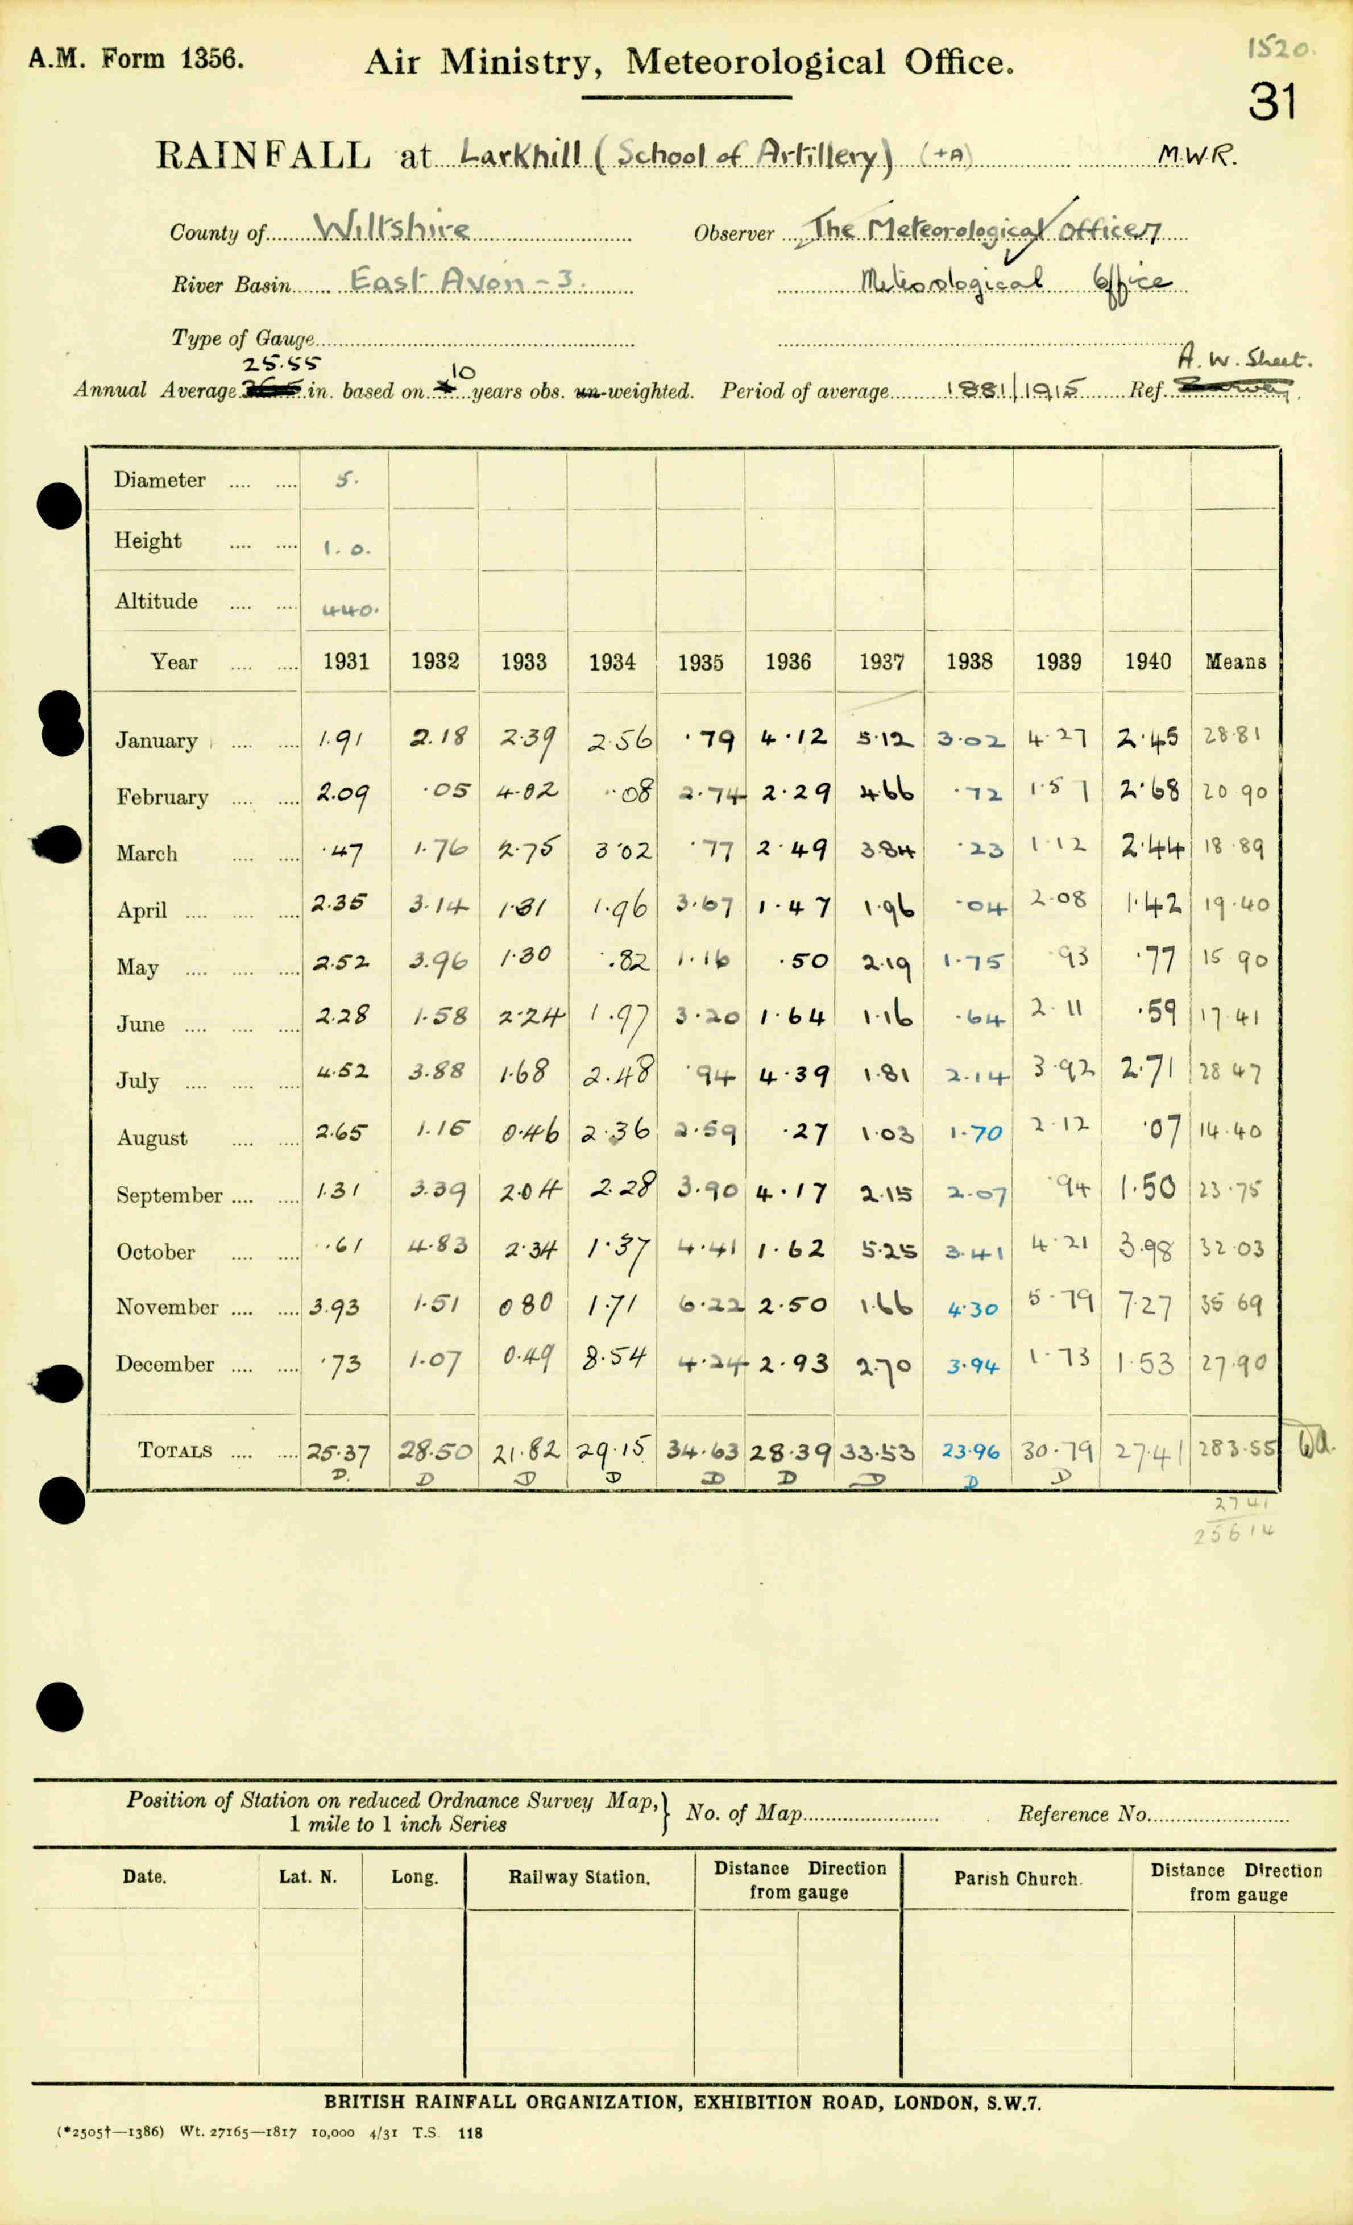 A.M. Form 1356. Air Ministry, Meteorological Office. 1520.
31
RAINFALL at Larkhill (School of Artillery) (+A) M.W.R.
County of Wiltshire Observer The Meteorological Officer
River Basin East Avon - 3. Meteorological Office
Type of Gauge
25.55 10 A. W. Sheet.
Annual Average in. based on years obs. un-weighted. Period of average 1881/1915 Ref.
Diameter .... .... 5.
Height .... .... 1. 0.
Altitude .... .... 440.
Year .... .... 1931 1932 1933 1934 1935 1936 1937 1938 1939 1940 Means
January .... .... 1.91 2.18 2.39 2.56 .79 4.12 5.12 3.02 4.27 2.45 28.81
February .... .... 2.09 .05 4.02 .08 2.74 2.29 4.66 .72 1.57 2.68 20 90
March .... .... .47 1.76 2.75 3.02 .77 2.49 3.84 .23 1.12 2.44 18.89
April .... .... .... 2.35 3.14 1.31 1.96 3.67 1.47 1.96 .04 2.08 1.42 19.40
May .... .... .... 2.52 3.96 1.30 .82 1.16 .50 2.19 1.75 .93 .77 15 90
June .... .... .... 2.28 1.58 2.24 1.97 3.20 1.64 1.16 .64 2.11 .59 17.41
July .... .... .... 4.52 3.88 1.68 2.48 .94 4.39 1.81 2.14 3.92 2.71 28 47
August .... .... 2.65 1.15 0.46 2.36 2.59 .27 1.03 1.70 2.12 .07 14.40
September .... .... 1.31 3.39 2.04 2.28 3.90 4.17 2.15 2.07 .94 1.50 23.75
October .... .... .61 4.83 2.34 1.37 4.41 1.62 5.25 3.41 4.21 3.98 32.03
November .... .... 3.93 1.51 0 80 1.71 6.22 2.50 1.66 4.30 5.79 7.27 35 69
December .... .... .73 1.07 0.49 8.54 4.24 2.93 2.70 3.94 1.73 1.53 27.90
TOTALS .... .... 25.37 28.50 21.82 29.15 34.63 28.39 33.53 23.96 30.79 27.41 283.55
D. D D D D D D D D
27 41
256 14
Position of Station on reduced Ordnance Survey Map, } No. of Map Reference No.
1 mile to 1 inch Series
Date. Lat. N. Long. Railway Station. Distance Direction from gauge Parish Church. Distance Direction from gauge
BRITISH RAINFALL ORGANIZATION, EXHIBITION ROAD, LONDON, S.W.7.
(*2505†—1386) Wt. 27165—1817 10,000 4/31 T.S. 118